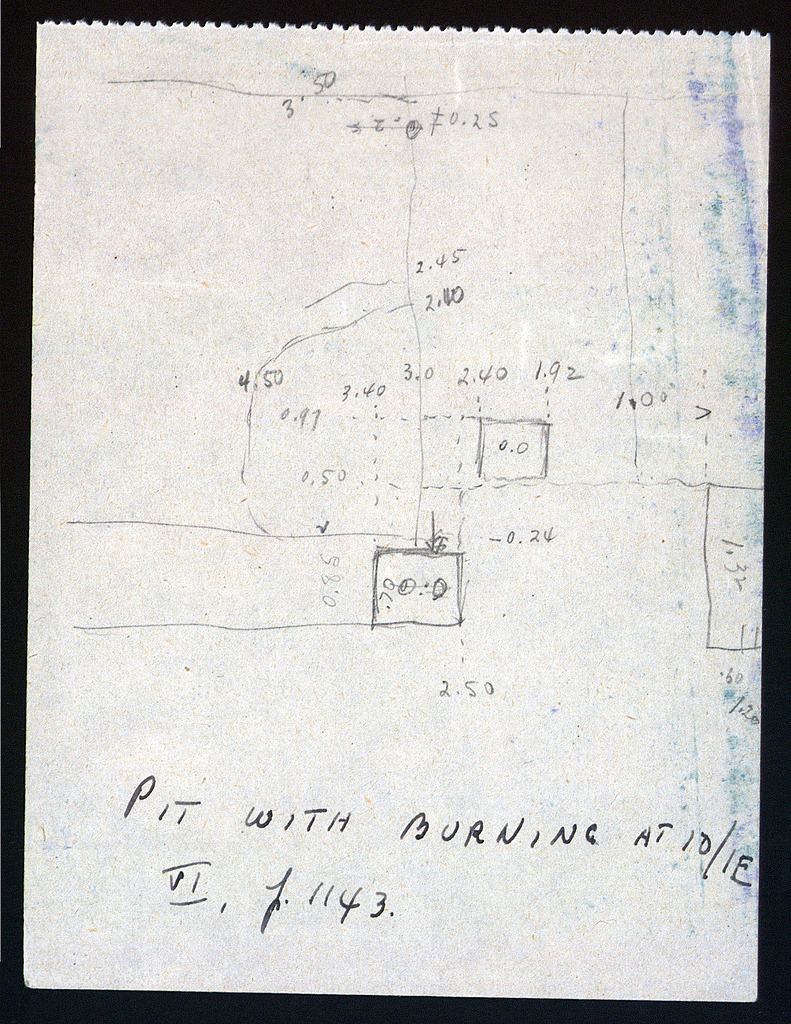 3.50
≠0.25
2.45
2.40
4.50
3.40 3.0 2.40 1.92
1.00
0.97
0.0
0.50
-0.24
0.85
.70
1.32
2.50
.60
1.20
PIT WITH BURNING AT 10/1E
VI, p. 1143.